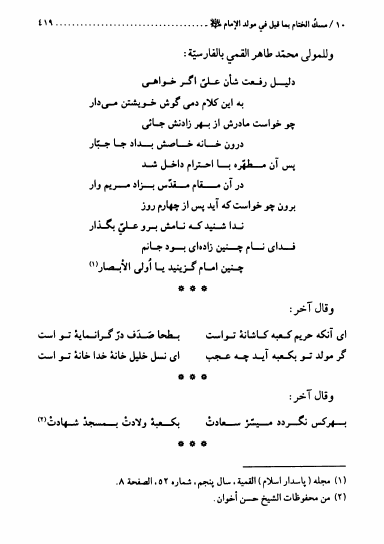 ١٠ / مسك الختام بما قيل في مولد الإمام ﷺ ........ ٤١٩
وللمولى محمّد طاهر القمي بالفارسيّة :
دليل رفعت شأن عليّ اگر خواهى
به اين كلام دمى گوش خويشتن مى‌دار
چو خواست مادرش از بهر زادنش جائى
درون خانه خاصش بداد جا جبّار
پس آن مطهّره با احترام داخل شد
در آن مقام مقدّس بزاد مريم وار
برون چو خواست كه آيد پس از چهارم روز
ندا شنيد كه نامش برو عليّ بگذار
فداى نام چنين زاده‌اى بود جانم
چنين امام گزينيد يا اُولى الأبصار (١)
* * *
وقال آخر :
اى آنكه حريم كعبه كاشانهٔ تو است بطحا صَدَف درّ گرانمايهٔ تو است
گر مولد تو بكعبه آيد چه عجب اى نسل خليل خانهٔ خدا خانهٔ تو است
* * *
وقال آخر :
بهركس نگردد ميسّرْ سعادتْ بكعبهْ ولادتْ بمسجدْ شهادتْ (٢)
* * *
(١) مجله ( پاسدار اسلام ) القمية ، سال پنجم ، شماره ٥٢ ، الصفحة ٨.
(٢) من محفوظات الشيخ حسن أخوان .